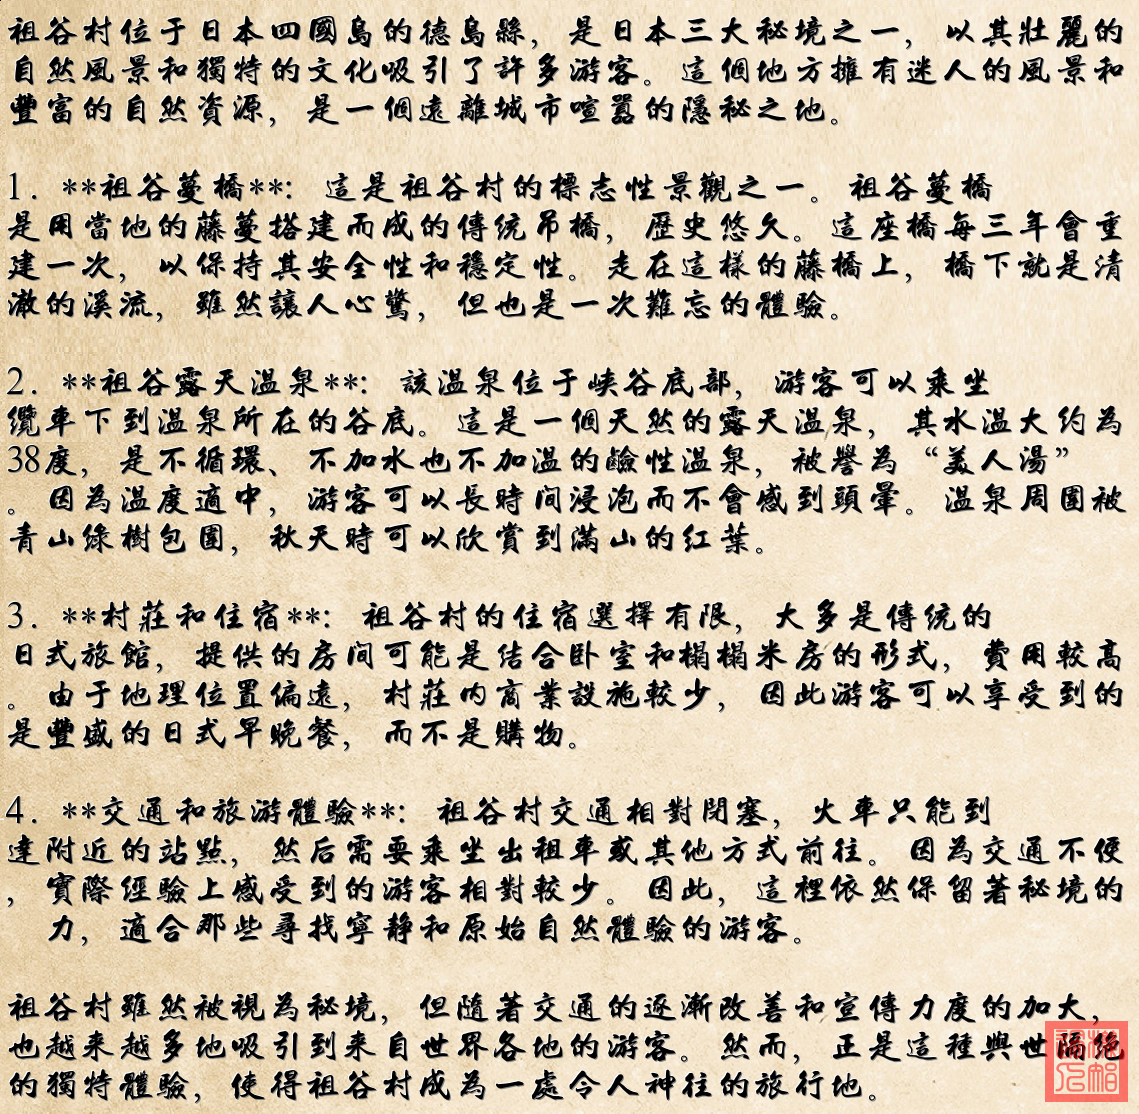 祖谷村位于日本四國島的德島縣，是日本三大秘境之一，以其壯麗的
自然風景和獨特的文化吸引了許多游客。這個地方擁有迷人的風景和
豐富的自然資源，是一個遠離城市喧囂的隱秘之地。
1. **祖谷蔓橋**: 這是祖谷村的標志性景觀之一。祖谷蔓橋
是用當地的藤蔓搭建而成的傳統吊橋，歷史悠久。這座橋每三年會重
建一次，以保持其安全性和穩定性。走在這樣的藤橋上，橋下就是清
澈的溪流，雖然讓人心驚，但也是一次難忘的體驗。
2. **祖谷露天温泉**: 該温泉位于峡谷底部，游客可以乘坐
纜車下到温泉所在的谷底。這是一個天然的露天温泉，其水温大约為
38度，是不循環、不加水也不加温的鹼性温泉，被譽為“美人湯”
。因為温度適中，游客可以長時间浸泡而不會感到頭暈。温泉周圍被
青山綠樹包圍，秋天時可以欣賞到滿山的红葉。
3. **村莊和住宿**: 祖谷村的住宿選擇有限，大多是傳统的
日式旅館，提供的房間可能是结合卧室和榻榻米房的形式，費用較高
。由于地理位置偏遠，村莊内商業設施較少，因此游客可以享受到的
是豐盛的日式早晚餐，而不是購物。
4. **交通和旅游體驗**: 祖谷村交通相對閉塞，火車只能到
達附近的站點，然后需要乘坐出租車或其他方式前往。因為交通不便
，實際經驗上感受到的游客相對較少。因此，這裡依然保留著秘境的
力，適合那些尋找寧静和原始自然體驗的游客。
祖谷村雖然被視為秘境，但隨著交通的逐漸改善和宣傳力度的加大，
也越来越多地吸引到来自世界各地的游客。然而，正是這種與世隔绝
的獨特體驗，使得祖谷村成為一處令人神往的旅行地。